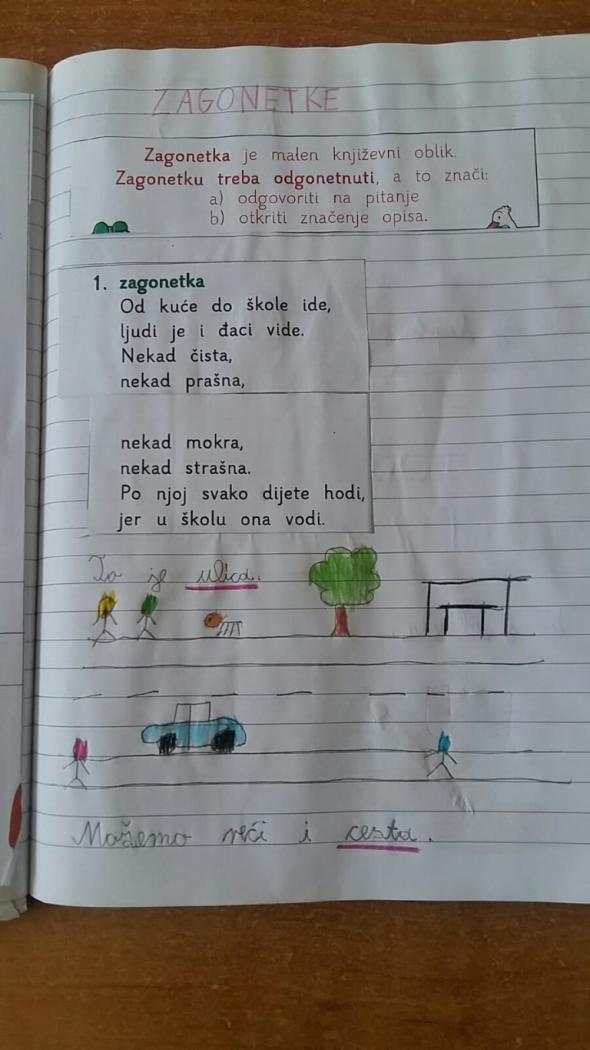 ZAGONETKE
Zagonetka je malen književni oblik.
Zagonetku treba odgonetnuti, a to znači:
a) odgovoriti na pitanje
b) otkriti značenje opisa.
1. zagonetka
Od kuće do škole ide,
ljudi je i đaci vide.
Nekad čista,
nekad prašna,
nekad mokra,
nekad strašna.
Po njoj svako dijete hodi,
jer u školu ona vodi.
To je ulica.
Možemo reći i cesta.